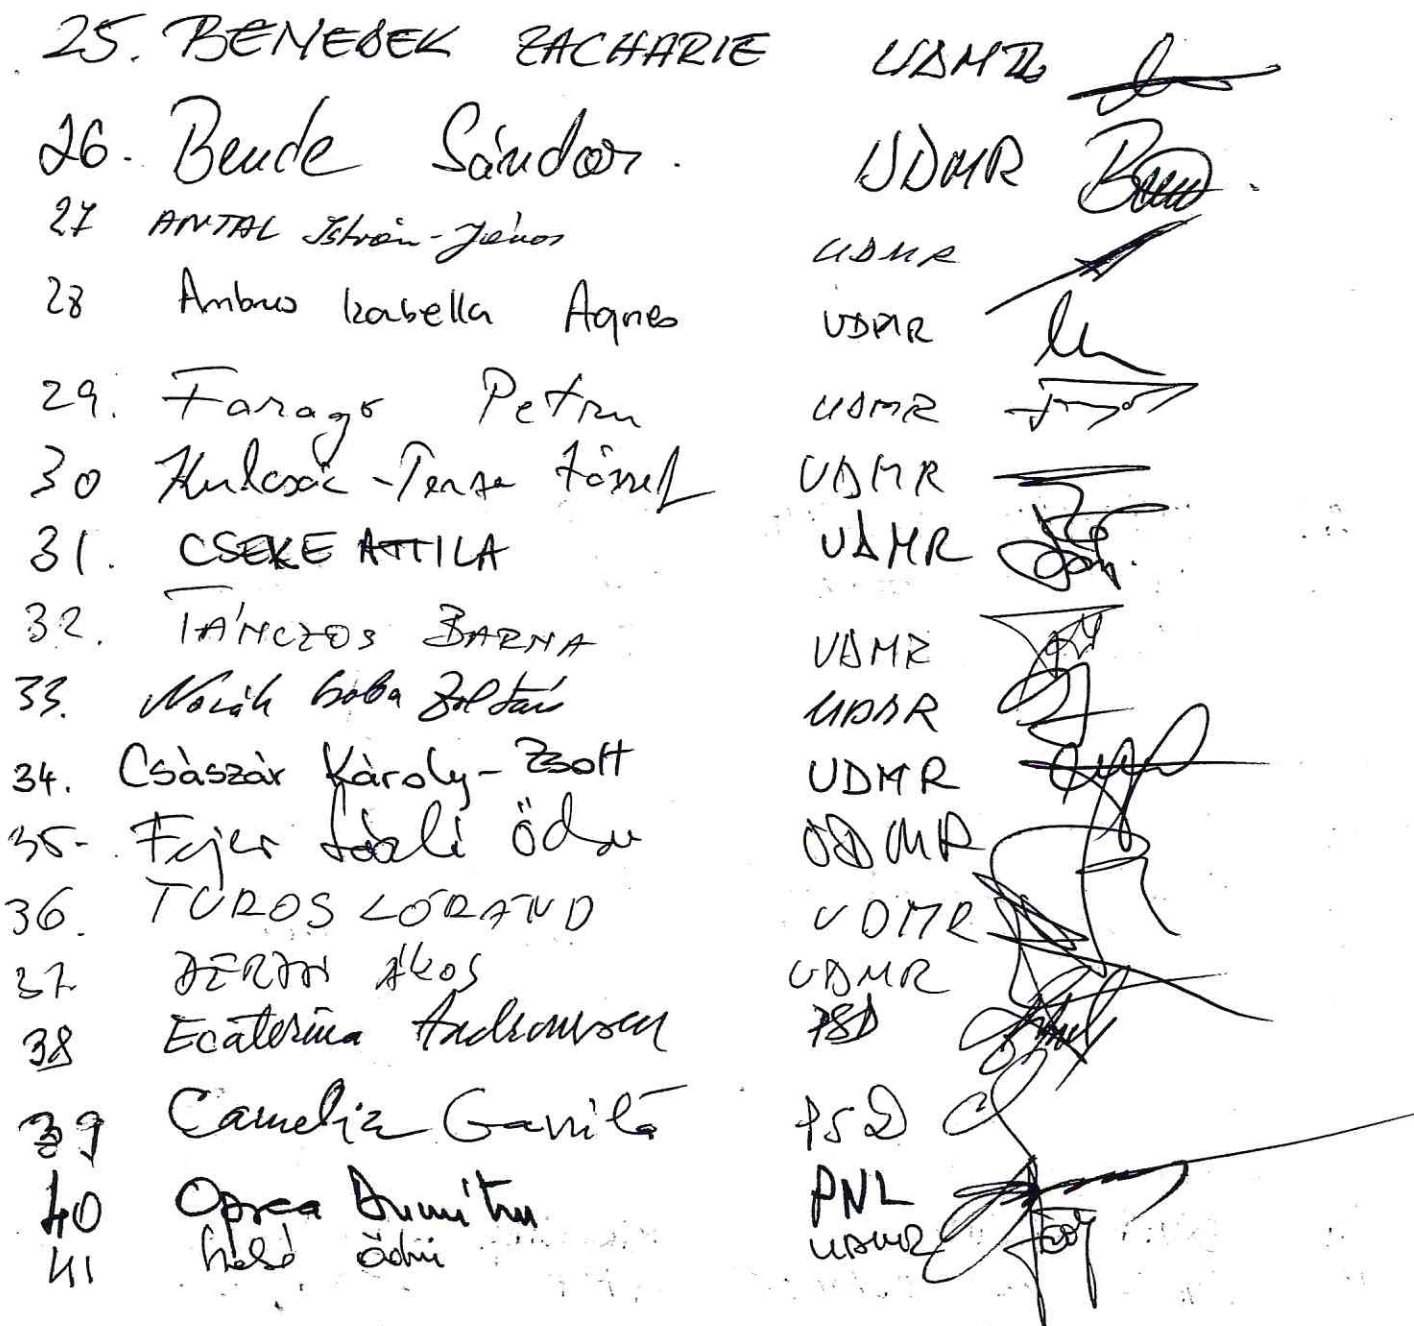 25. BENEDEK ZACHARIE UDMR
26. Bende Sándor. UDMR
27 ANTAL István-János UDMR
28 Ambrus Izabella Agnes UDMR
29. Farago Petru UDMR
30 Kulcsár-Terza József UDMR
31. CSEKE ATTILA UDMR
32. TÁNCZOS BARNA UDMR
33. Novák Csaba Zoltán UDMR
34. Császár Károly-Zsolt UDMR
35- Fejér László Ödön UDMR
36. TUROS LÓRÁND UDMR
37. Ákos UDMR
38 Ecaterina Andronescu PSD
39 Camelia Gavrilă PSD
40 Oprea Dumitru PNL
41 UDMR